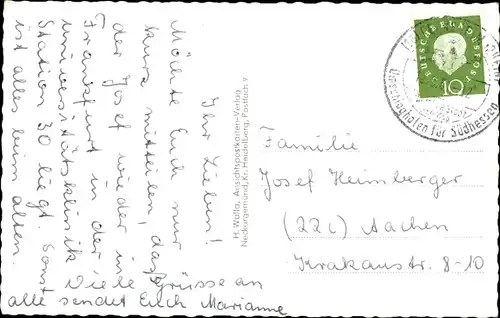 Ihr Lieben!
Möchte Euch nur
kurz mitteilen, daß
der Josef wieder in
Frankfurt in der
Universitätsklinik
Station 30 liegt. Sonst
ist alles beim alten.
Viele Grüsse an
alle sendet Euch Marianne
H. Walla, Ansichtspostkarten-Verlag
Neckargemünd, Kr. Heidelberg, Postfach 9
DEUTSCHE BUNDESPOST
10
Umschlaghafen für Südhessen
Familie
Josef Heimberger
(22c) Aachen
Krakaustr. 8-10